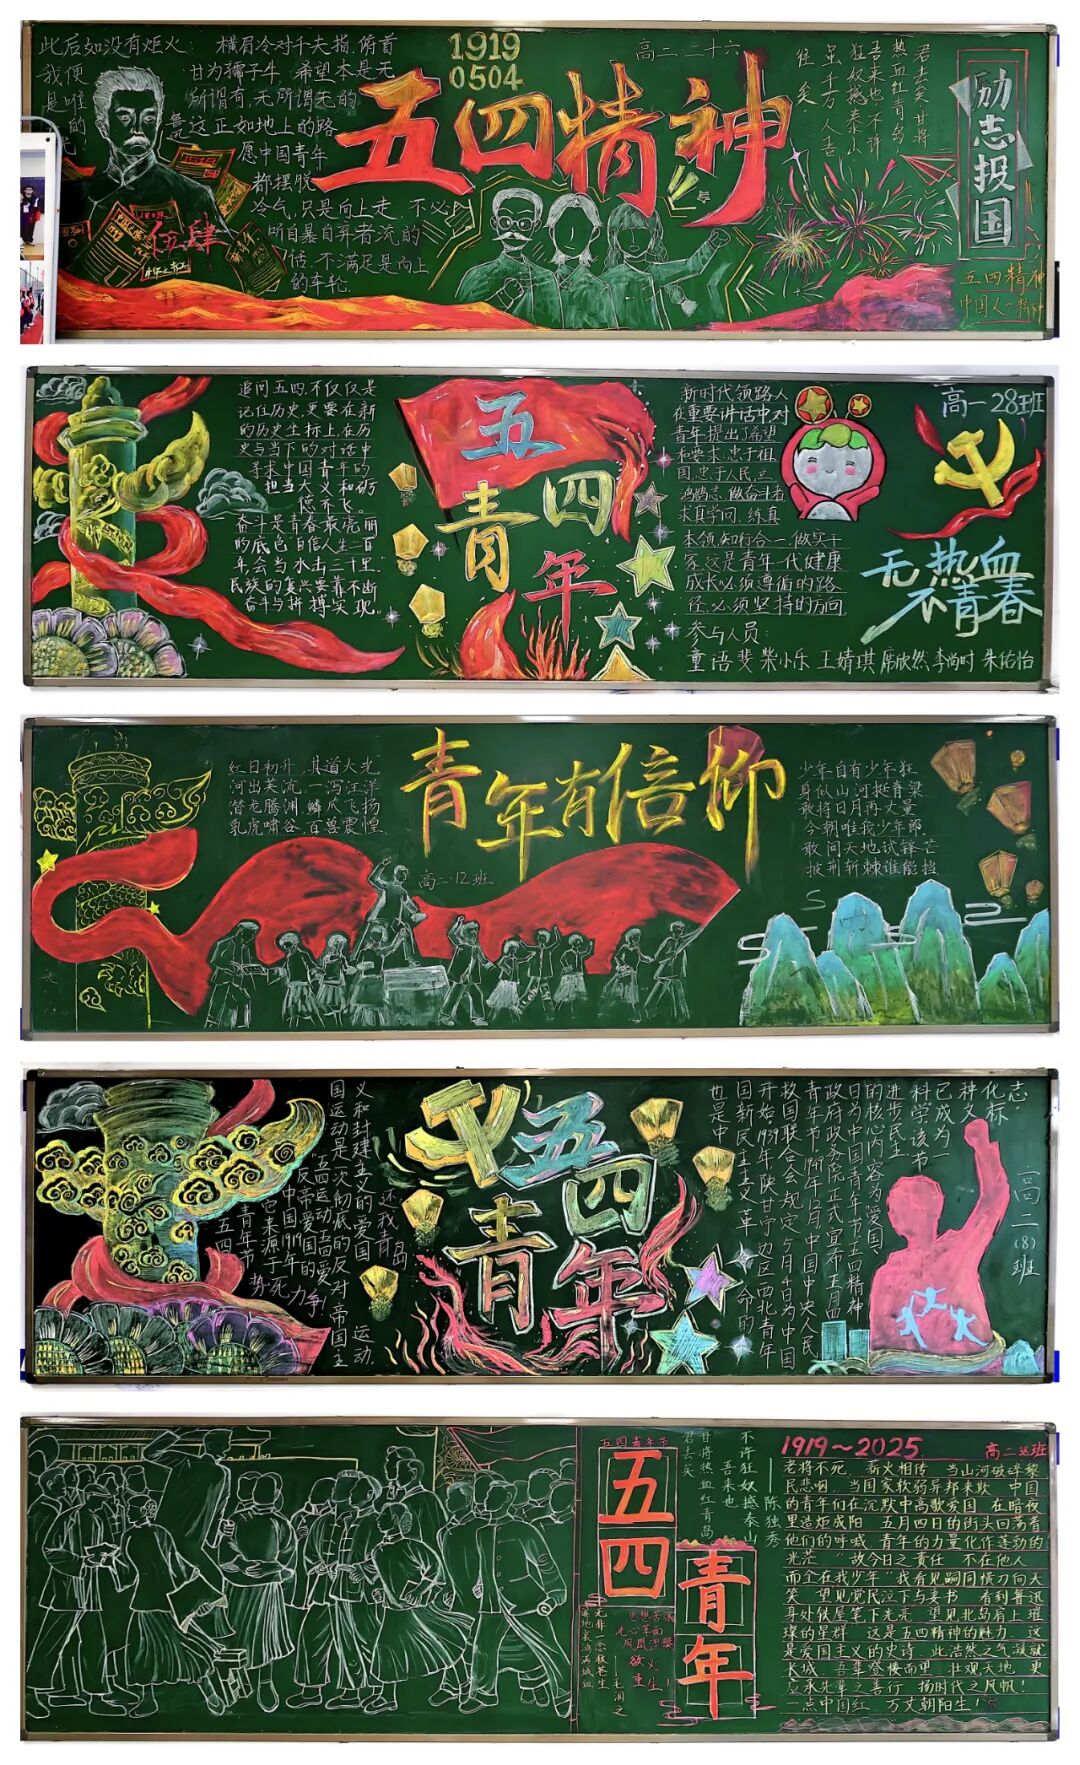 此后如没有炬火：
我便
是唯一
的
横眉冷对千夫指，俯首
甘为孺子牛。希望本是无
所谓有，无所谓无的，
这正如地上的路
愿中国青年
都摆脱
冷气，只是向上走，不必
听自暴自弃者流的
话。不满足是向上
的车轮
伍肆
1919
0504
五四精神
高二·二十六
君去矣，甘将
热血红青岛
吾来也，不许
狂奴撼泰山
虽千万人吾
往矣
励志报国
五四精神
中国人
追问五四,不仅仅是
记住历史,更要在新
的历史坐标上,在历
史与当下的对话中
寻求中国青年的
担当大义和砺
德齐飞。
奋斗是青春最亮丽
的底色,自信人生二百
年,会当水击三千里.
民族的复兴要靠不断
奋斗与拼搏实现。
五四
青年
新时代领路人
在重要讲话中对
青年提出了希望
和要求:忠于祖
国,忠于人民,立
鸿鹄志,做奋斗者
求真学问,练真
本领,知行合一,做实干
家,这是青年一代健康
成长必须遵循的路
径,必须坚持的方向
参与人员：
童语斐 柴小乐 王婧琪 席欣然 李尚时 朱佑怡
高一28班
无热血
不青春
红日初升，其道大光
河出英流，一泻汪洋
潜龙腾渊，鳞爪飞扬
乳虎啸谷，百兽震惶
青年有信仰
高二·12班
少年自有少年狂
身似山河挺脊梁
敢将日月再丈量
今朝唯我少年郎
敢问天地试锋芒
披荆斩棘谁能挡
五四
青年节
它来源于
中国1919年
反帝爱国的
五四运动,五四爱
国运动是一次彻底的反对帝国主
义和封建主义的爱国
运动.
还我青岛
势死力争!
五四
青年
也是中
国新民主主义革命的
开始.1939年,陕甘宁边区西北青年
救国联合会规定5月4日为中国
青年节.1949年12月,中国中央人民
政府政务院正式宣布五月四
日为中国青年节.五四精神
的核心内容为爱国
进步民主
科学.该节
已成为一
种文
化标
志.
高二(8)班
五四青年节
五四
青年
君去矣
甘将热血红青岛
吾来也
不许狂奴撼泰山
——陈独秀
无非一念救苍生
遍地哀鸿满城血
——毛润之
思想苦冰
光心革面
凤凰涅槃
欲火
重生！
1919～2025
高二
老将不死，薪火相传，当山河破碎黎
民悲咽，当国家软弱异邦来欺，中国
的青年们在沉默中高歌爱国，在暗夜
里造炬成阳，五月四日的街头回荡着
他们的呼喊，青年的力量化作蓬勃的
光芒，“故今日之责任，不在他人，
而全在我少年”我看见嗣同横刀向天
笑，望见觉民泣下与妻书，看到鲁迅
身处铁屋笔下光亮，望见北岛肩上璀
璨的星群，这是五四精神的魅力，这
是爱国主义的史诗，此浩然之气凝就
长城，吾辈登楼而望，壮观天地，更
应承先辈之善行，扬时代之风帆！
一点中国红，万丈朝阳生！